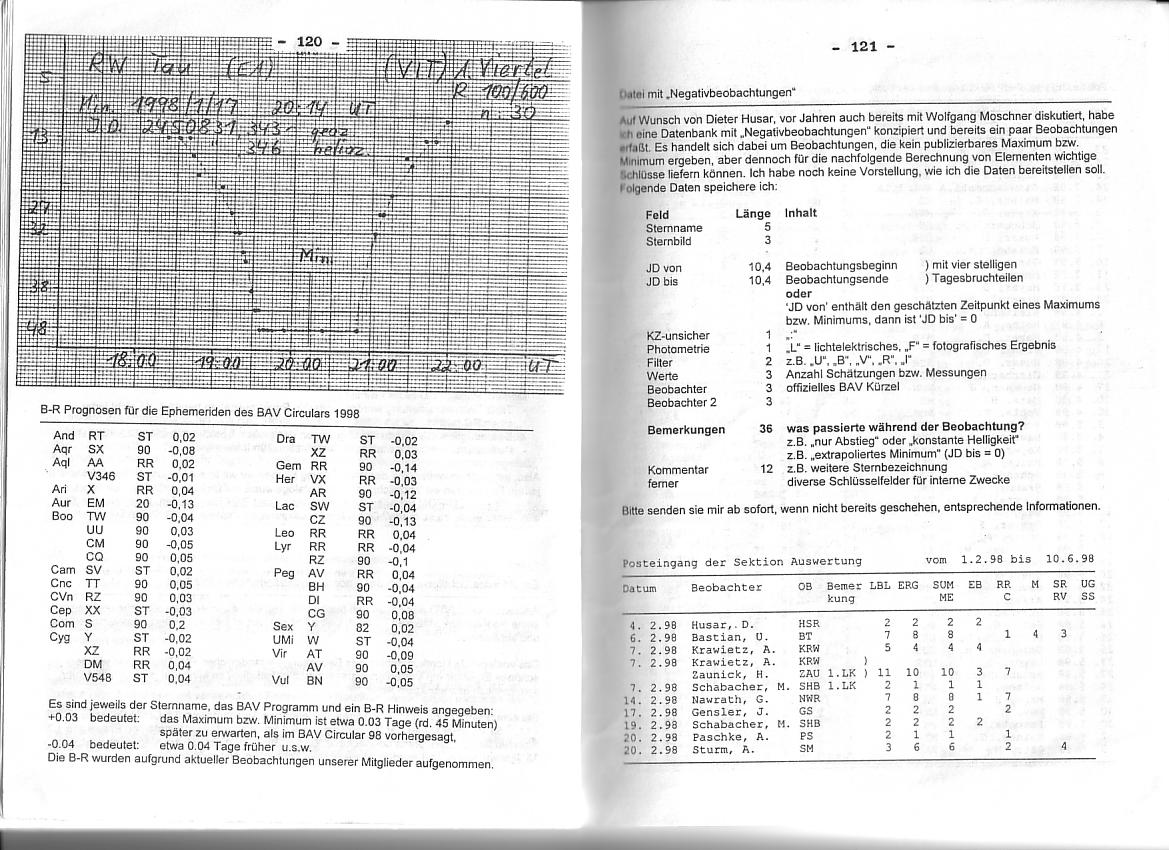 - 120 -
RW Tau (EA) (VIT) 1. Viertel
S R 100/600
Min. 1998/1/17 20:14 UT n: 30
J.D. 2450831,343 geoz.
13 ,346 helioz.
27
32
Min.
38
48
18:00 19:00 20:00 21:00 22:00 UT
B-R Prognosen für die Ephemeriden des BAV Circulars 1998
And RT ST 0,02
Aqr SX 90 -0,08
Aql AA RR 0,02
V346 ST -0,01
Ari X RR 0,04
Aur EM 20 -0,13
Boo TW 90 -0,04
UU 90 0,03
CM 90 -0,05
CQ 90 0,05
Cam SV ST 0,02
Cnc TT 90 0,05
CVn RZ 90 0,03
Cep XX ST -0,03
Com S 90 0,2
Cyg Y ST -0,02
XZ RR -0,02
DM RR 0,04
V548 ST 0,04
Dra TW ST -0,02
XZ RR 0,03
Gem RR 90 -0,14
Her VX RR -0,03
AR 90 -0,12
Lac SW ST -0,04
CZ 90 -0,13
Leo RR RR 0,04
Lyr RR RR -0,04
RZ 90 -0,1
Peg AV RR 0,04
BH 90 -0,04
DI RR -0,04
CG 90 0,08
Sex Y 82 0,02
UMi W ST -0,04
Vir AT 90 -0,09
AV 90 0,05
Vul BN 90 -0,05
Es sind jeweils der Sternname, das BAV Programm und ein B-R Hinweis angegeben:
+0.03 bedeutet: das Maximum bzw. Minimum ist etwa 0.03 Tage (rd. 45 Minuten)
später zu erwarten, als im BAV Circular 98 vorhergesagt,
-0.04 bedeutet: etwa 0.04 Tage früher u.s.w.
Die B-R wurden aufgrund aktueller Beobachtungen unserer Mitglieder aufgenommen.
- 121 -
Datei mit „Negativbeobachtungen"
Auf Wunsch von Dieter Husar, vor Jahren auch bereits mit Wolfgang Moschner diskutiert, habe
ich eine Datenbank mit „Negativbeobachtungen" konzipiert und bereits ein paar Beobachtungen
erfaßt. Es handelt sich dabei um Beobachtungen, die kein publizierbares Maximum bzw.
Minimum ergeben, aber dennoch für die nachfolgende Berechnung von Elementen wichtige
Schlüsse liefern können. Ich habe noch keine Vorstellung, wie ich die Daten bereitstellen soll.
Folgende Daten speichere ich:
Feld Länge Inhalt
Sternname 5
Sternbild 3
JD von 10,4 Beobachtungsbeginn ) mit vier stelligen
JD bis 10,4 Beobachtungsende ) Tagesbruchteilen
oder
'JD von' enthält den geschätzten Zeitpunkt eines Maximums
bzw. Minimums, dann ist 'JD bis' = 0
KZ-unsicher 1 „:"
Photometrie 1 „L" = lichtelektrisches, „F" = fotografisches Ergebnis
Filter 2 z.B. „U", „B", „V", „R", „I"
Werte 3 Anzahl Schätzungen bzw. Messungen
Beobachter 3 offizielles BAV Kürzel
Beobachter 2 3
Bemerkungen 36 was passierte während der Beobachtung?
z.B. „nur Abstieg" oder „konstante Helligkeit"
z.B. „extrapoliertes Minimum" (JD bis = 0)
Kommentar 12 z.B. weitere Sternbezeichnung
ferner diverse Schlüsselfelder für interne Zwecke
Bitte senden sie mir ab sofort, wenn nicht bereits geschehen, entsprechende Informationen.
Posteingang der Sektion Auswertung vom 1.2.98 bis 10.6.98
Datum Beobachter OB Bemer LBL ERG SUM EB RR M SR UG
kung ME C RV SS
4. 2.98 Husar, D. HSR 2 2 2 2
6. 2.98 Bastian, U. BT 7 8 8 1 4 3
7. 2.98 Krawietz, A. KRW 5 4 4 4
7. 2.98 Krawietz, A. KRW )
Zaunick, H. ZAU 1.LK ) 11 10 10 3 7
7. 2.98 Schabacher, M. SHB 1.LK 2 1 1 1
14. 2.98 Nawrath, G. NWR 7 8 8 1 7
17. 2.98 Gensler, J. GS 2 2 2 2
19. 2.98 Schabacher, M. SHB 2 2 2 2
20. 2.98 Paschke, A. PS 2 1 1 1
20. 2.98 Sturm, A. SM 3 6 6 2 4